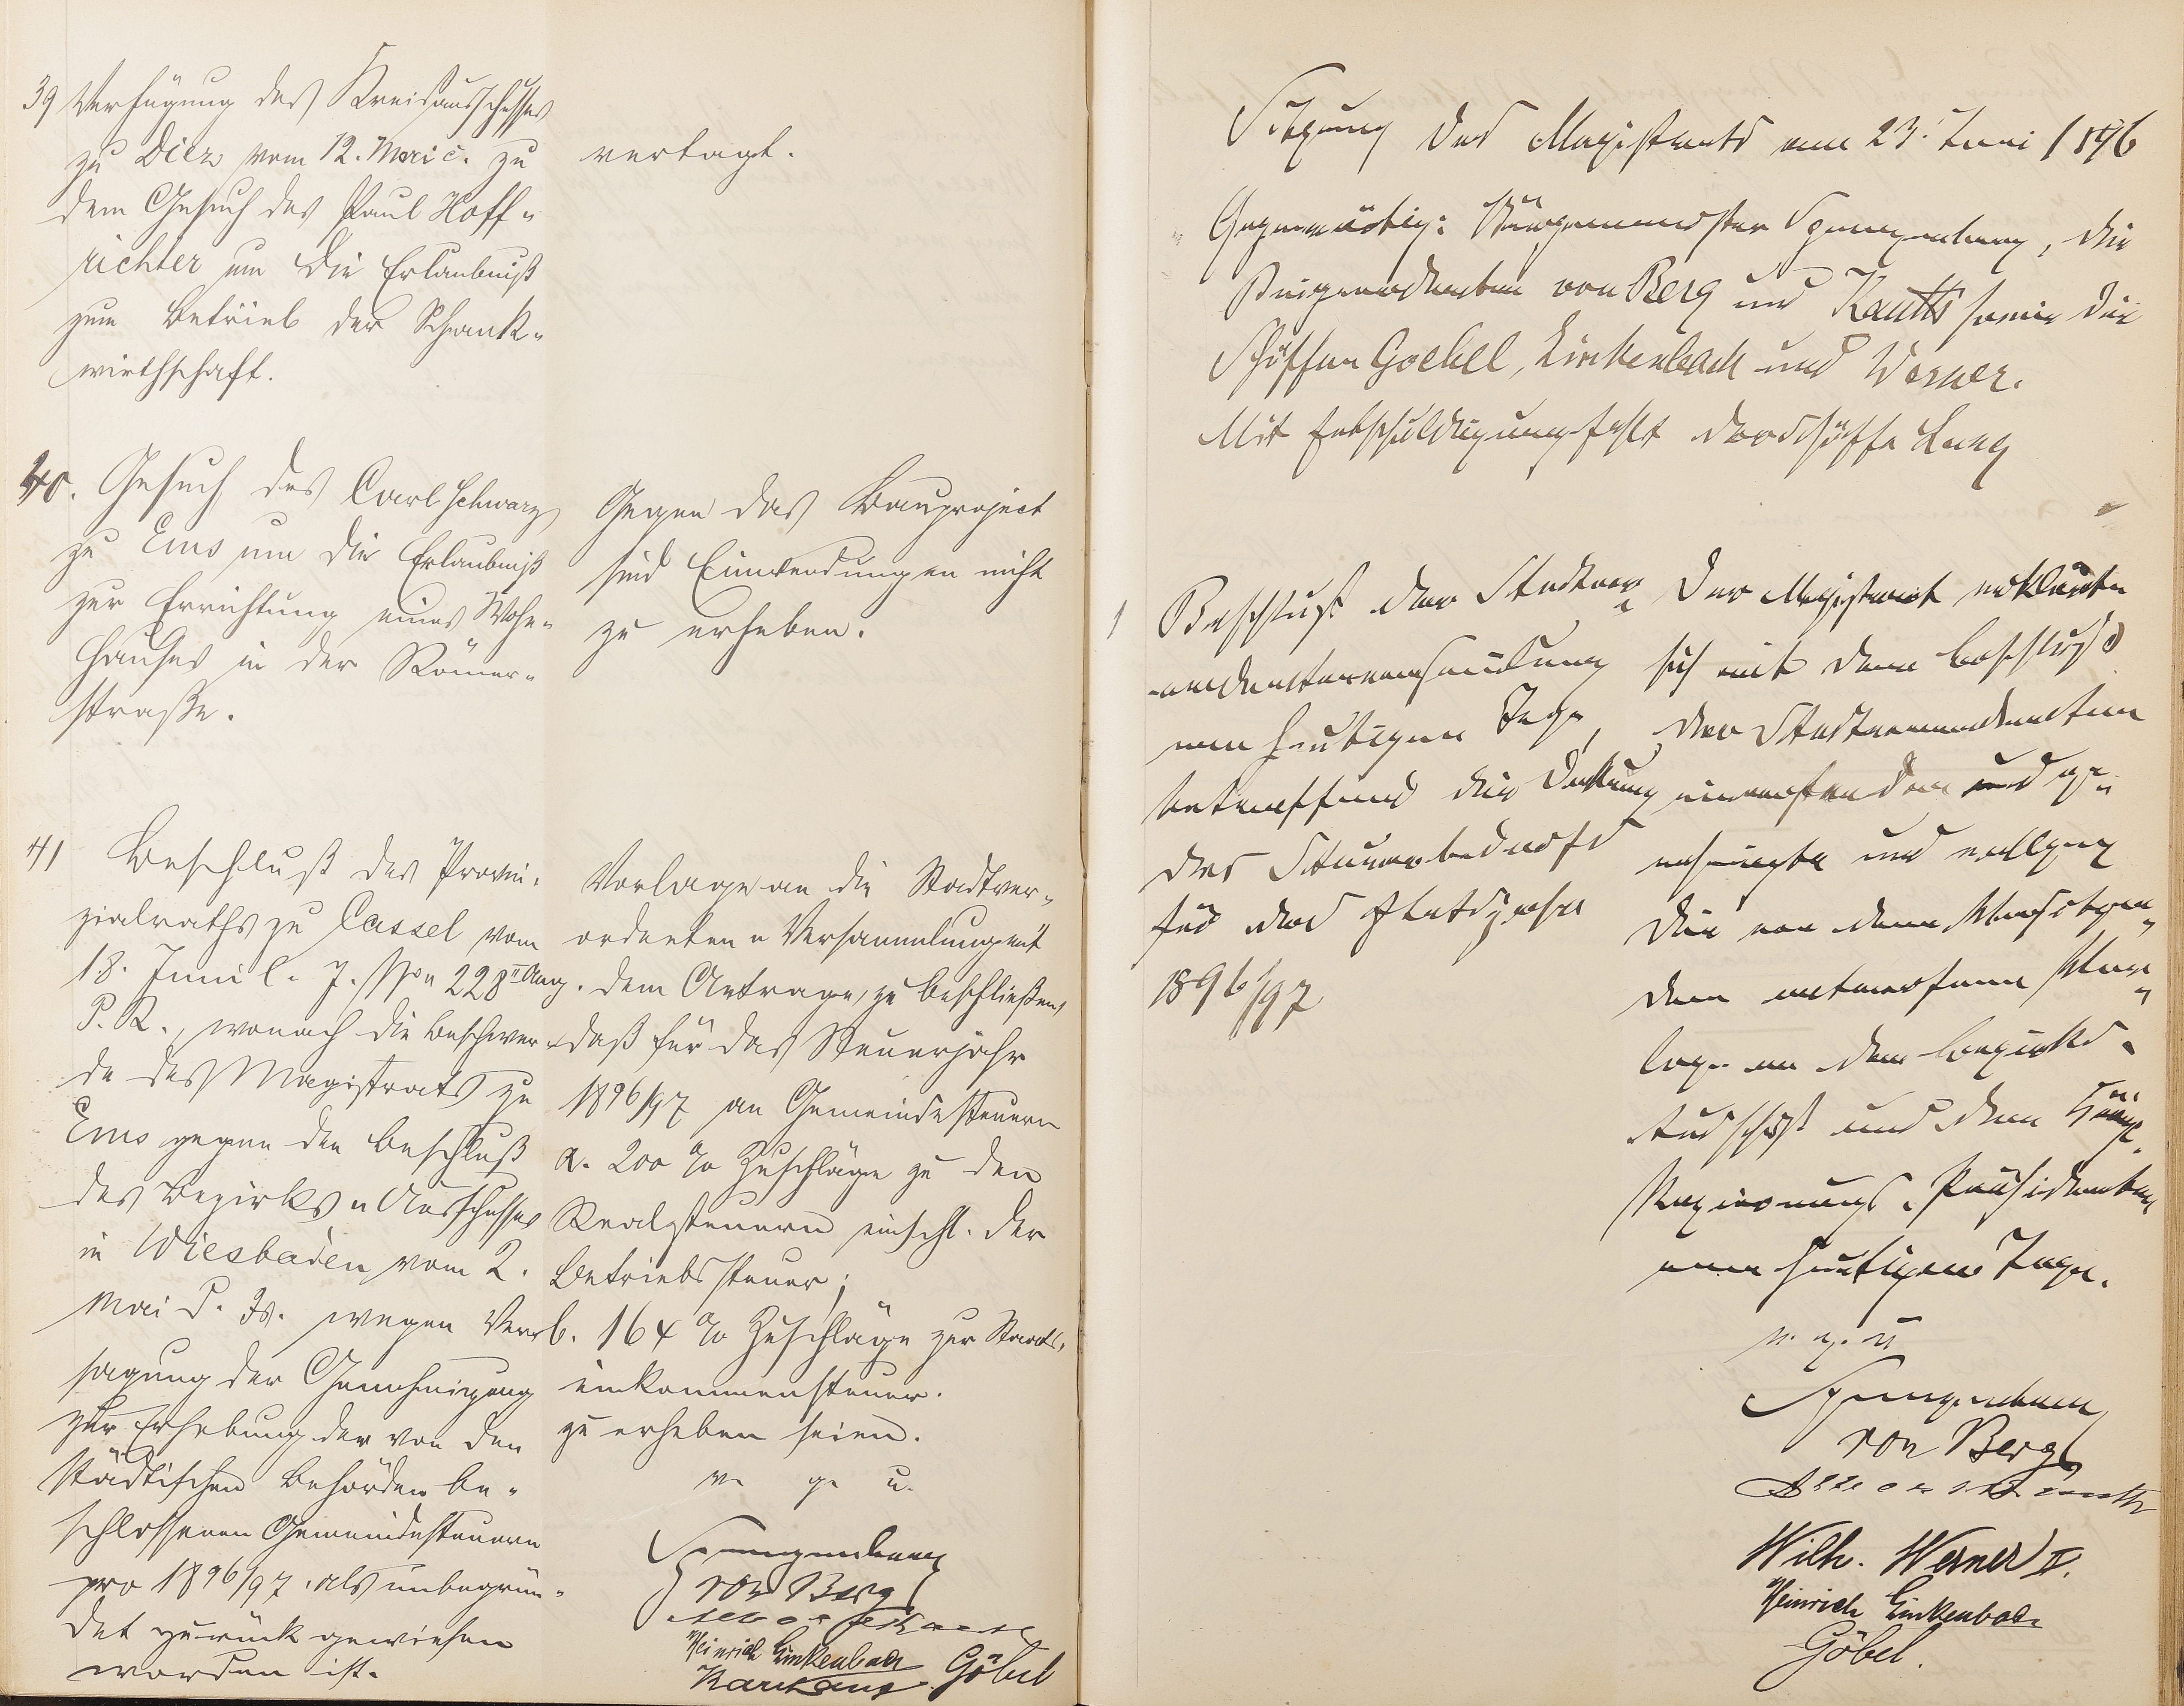 39 Verfügung des Kreisausschusses
zu Diez vom 12. Mai c. zu
dem Gesuch des Paul Hoff-
richter um die Erlaubniß
zum Betrieb der Schank-
wirthschaft.
vertagt.
40. Gesuch des Carl Schwarz
zu Ems um die Erlaubniß
zur Errichtung eines Wohn-
hauses in der Römer-
straße.
Gegen das Bauproject
sind Einwendungen nicht
zu erheben.
41 Beschluß des Provin-
zialraths zu Cassel vom
18. Juni l. J. No 228 II Ang.
P. R., wonach die Beschwer-
de des Magistrats zu
Ems gegen den Beschluß
des Bezirks-Ausschusses
in Wiesbaden vom 2.
Mai d. Js. wegen Ver-
sagung der Genehmigung
zur Erhebung der von den
städtischen Behörden be-
schlossenen Gemeindesteuern
pro 1896/97 als unbegrün-
det zurück gewiesen
worden ist.
Vorlage an die Stadtver-
ordneten-Versammlung mit
dem Antrage, zu beschließen,
daß für das Steuerjahr
1896/97 an Gemeindesteuern
a. 200 % Zuschläge zu den
Realsteuern einschl. der
Betriebssteuer;
b. 164 % Zuschläge zur Staats-
einkommensteuer.
zu erheben seien.
v. g. u.
Spangenberg
von Berg
Heinrich Linkenbach
Karl Lang Göbel
Sitzung des Magistrats vom 23. Juni 1896
Gegenwärtig: Bürgermeister Spangenberg, die
Beigeordneten von Berg und Kauth sowie die
Schöffen Goebel, Linkenbach und Werner.
Mit Entschuldigung fehlt der Schöffe Lang
1 Beschluß der Stadtver-
ordnetenversammlung
vom heutigen Tage,
betreffend die Deckung
des Steuerbedarfs
für das Etatsjahr
1896/97
Der Magistrat erklärte
sich mit dem Beschluß
der Stadtverordneten
einverstanden und ge-
nehmigte und vollzog
die von dem
dem entworfenen Vor-
lage an den Bezirks-
Ausschuß und den Königl.
Regierungs-Präsidenten
vom heutigen Tage.
v. g. u
Spangenberg
von Berg
Kauth
Wilh. Werner II.
Heinrich Linkenbach
Göbel.